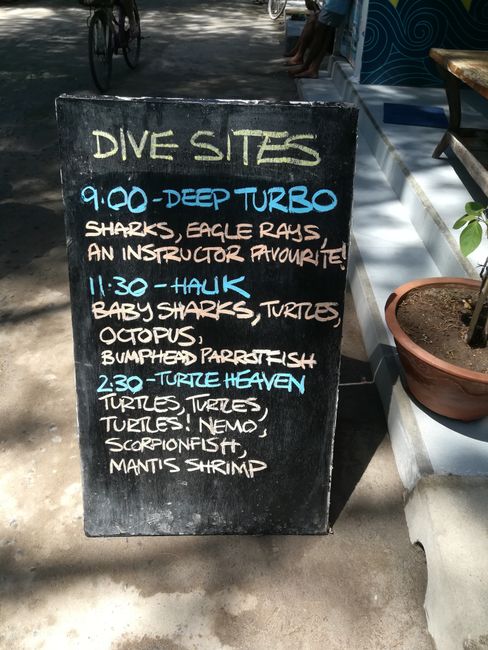 DIVE SITES
9.00 - DEEP TURBO
SHARKS, EAGLE RAYS,
AN INSTRUCTOR FAVOURITE!
11.30 - HALIK
BABY SHARKS, TURTLES,
OCTOPUS,
BUMPHEAD PARROTFISH
2.30 - TURTLE HEAVEN
TURTLES, TURTLES,
TURTLES! NEMO,
SCORPIONFISH,
MANTIS SHRIMP